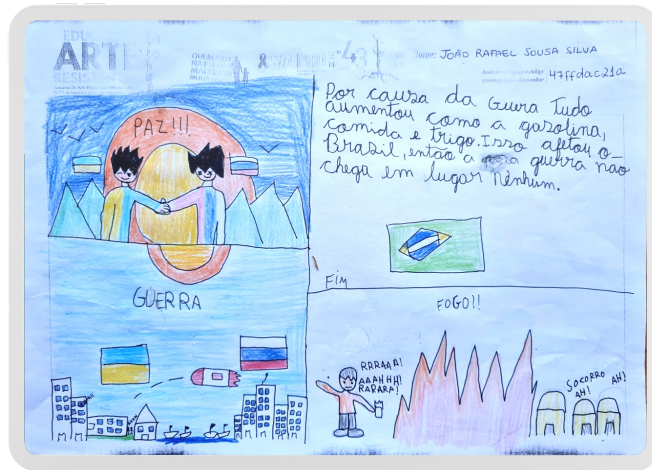 EDUC
ARTE
RESIST
Nome: JOÃO RAFAEL SOUSA SILVA
47ffdac21a
PAZ!!!
Por causa da Guura Tudo
aumentou como a gasolina,
comida e trigo. Isso afetou o
Brasil, então a guerra não
chega em lugar nenhum.
FIM
GUERRA
FOGO!!
RRRAAA!
AAAHHH!
RARARA!
SOCORRO
AH!
AH!